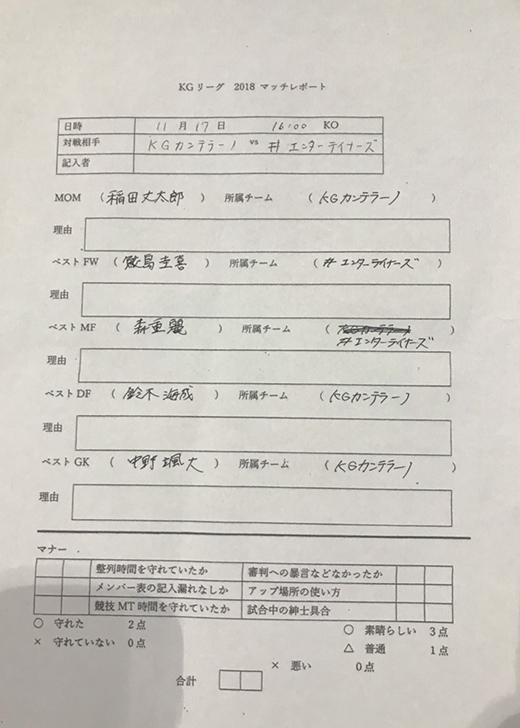 KGリーグ 2018 マッチレポート
日時 11月17日 16:00 KO
対戦相手 KGカンテラーノ vs #エンターテイナーズ
記入者
MOM (稲田丈太郎) 所属チーム (KGカンテラーノ)
理由
ベストFW (鮫島圭喜) 所属チーム (#エンターテイナーズ)
理由
ベストMF (森重麗) 所属チーム (KGカンテラーノ)
#エンターテイナーズ
理由
ベストDF (鈴木海成) 所属チーム (KGカンテラーノ)
理由
ベストGK (中野颯大) 所属チーム (KGカンテラーノ)
理由
マナー
整列時間を守れていたか 審判への暴言などなかったか
メンバー表の記入漏れなしか アップ場所の使い方
競技MT時間を守れていたか 試合中の紳士具合
○ 守れた 2点 ○ 素晴らしい 3点
× 守れていない 0点 △ 普通 1点
× 悪い 0点
合計